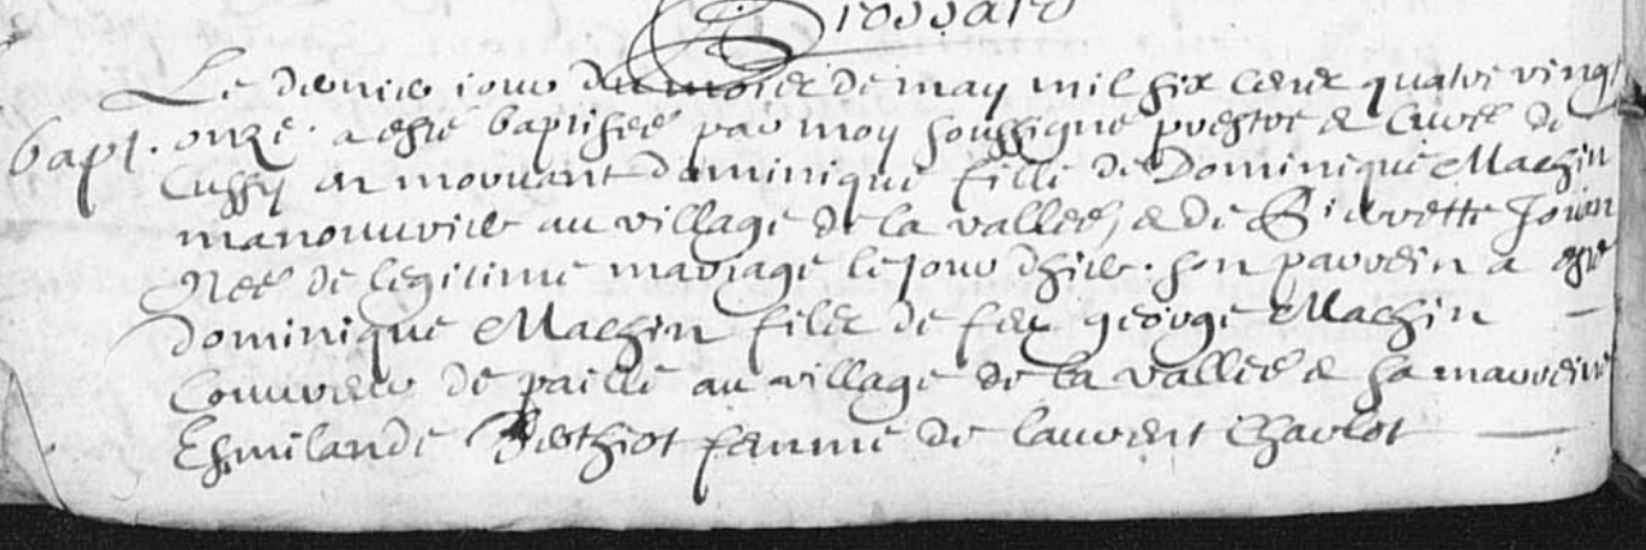 Brossard
Le dernier iour du mois de may mil six cens quatre vingt
bapt. onze. a esté baptisée par moy soussigné prestre & curé de
Cussy en morvant dominique fille de Dominique Machin
manouvrier au village de la vallée, & de Pierrette Jouan
Née de legitime mariage le jour d'hier. son parrein a esté
Dominique Machin fils de feu george Machin
Couvreur de paille au village de la vallée & sa marreine
Esmilande Berthiot femme de laurent Charlot